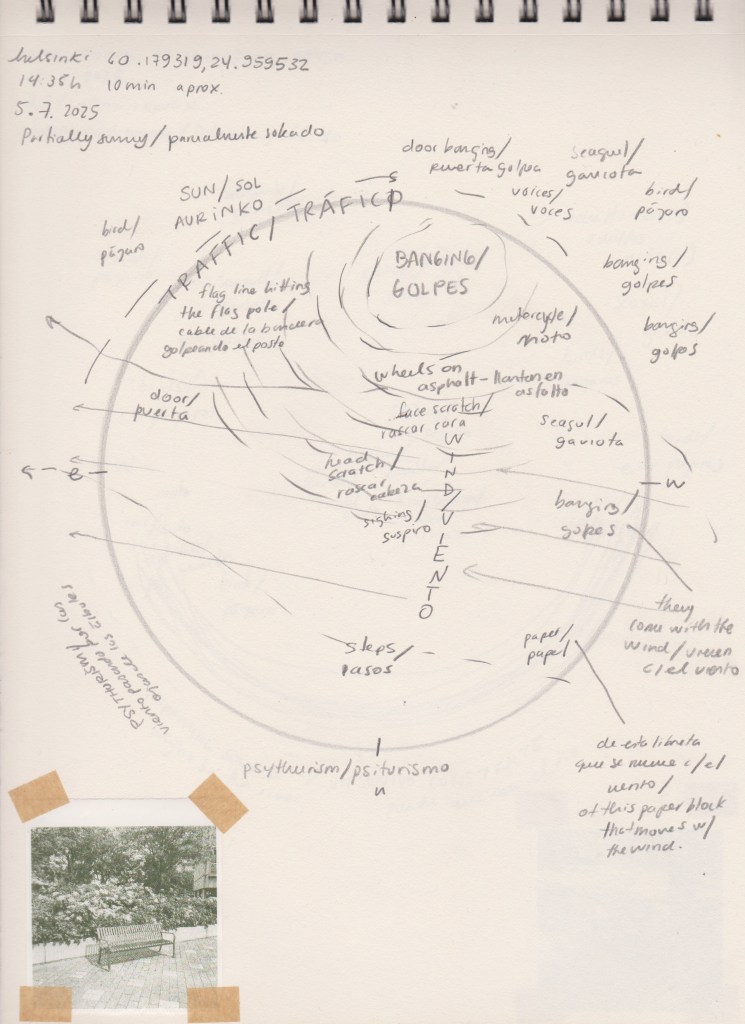 helsinki 60.179319, 24.959532
14:35h 10min aprox.
5.7.2025
Partially sunny/parcialmente soleado
door banging/
puerta golpea
seagul/
gaviota
voices/
voces
bird/
pájaro
SUN/SOL
AURINKO
s
bird/
pájaro
TRAFFIC/TRÁFICO
BANGING/
GOLPES
banging/
golpes
flag line hitting
the flag pole/
cable de la bandera
golpeando el poste
motorcycle/
moto
banging/
golpes
wheels on
asphalt-llantas en
asfalto
door/
puerta
face scratch/
rascar cara
seagul/
gaviota
WIND/VIENTO
head
scratch/
rascar
cabeza
e
w
banging/
golpes
sighing/
suspiro
they
come with the
wind/vienen
c/el viento
steps/
pasos
paper/
papel
PSYTHURISM/
viento pasando por las
psythurism/psiturismo
n
de esta libreta
que se mueve c/el
viento/
of this paper block
that moves w/
the wind.